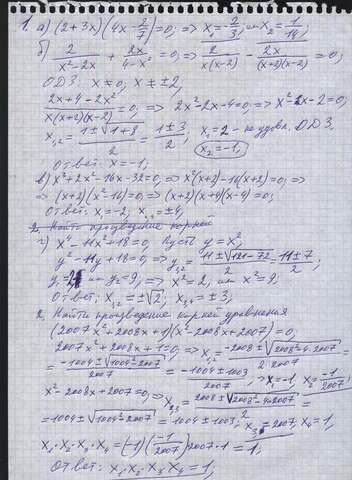 1. а) (2+3x)(4x-2/7)=0, => x₁=-2/3, или x₂=1/14,
б) 2/(x²-2x) + 2x/(4-x²) = 0, => 2/(x(x-2)) - 2x/((x+2)(x-2)) = 0;
ОДЗ. x≠0, x≠±2,
(2x+4-2x²)/(x(x+2)(x-2)) = 0, => 2x²-2x-4=0, => x²-x-2=0,
x₁,₂ = (1±√(1+8))/2 = (1±3)/2, x₁=2 - не удовл. ОДЗ.
x₂=-1,
Ответ: x=-1,
в) x³+2x²-16x-32=0, => x²(x+2)-16(x+2)=0, =>
=> (x+2)(x²-16)=0, => (x+2)(x+4)(x-4)=0,
Ответ: x₁=-2, x₂,₃=±4,
2. Найти произведение корней
г) x⁴-11x²+18=0, Пусть y=x²,
y²-11y+18=0, => y₁,₂ = (11±√(121-72))/2 = (11±7)/2;
y₁=2 или y₂=9, => x²=2, или x²=9,
Ответ: x₁,₂=±√2; x₃,₄=±3,
2. Найти произведение корней уравнения
(2007x²+2008x+1)(x²-2008x+2007)=0;
2007x²+2008x+1=0, => x₁,₂ = (-2008±√(2008²-4·2007))/(2·2007) =
= (-1004±√(1004²-2007))/2007 = (-1004±1003)/2007, => x₁=-1, x₂=-1/2007;
x²-2008x+2007=0, => x₃,₄ = (2008±√(2008²-4·2007))/2 =
=1004±√(1004²-2007) = 1004±1003; x₃=2007, x₄=1,
x₁·x₂·x₃·x₄=(-1)(-1/2007)2007·1=1;
Ответ: x₁·x₂·x₃·x₄=1,